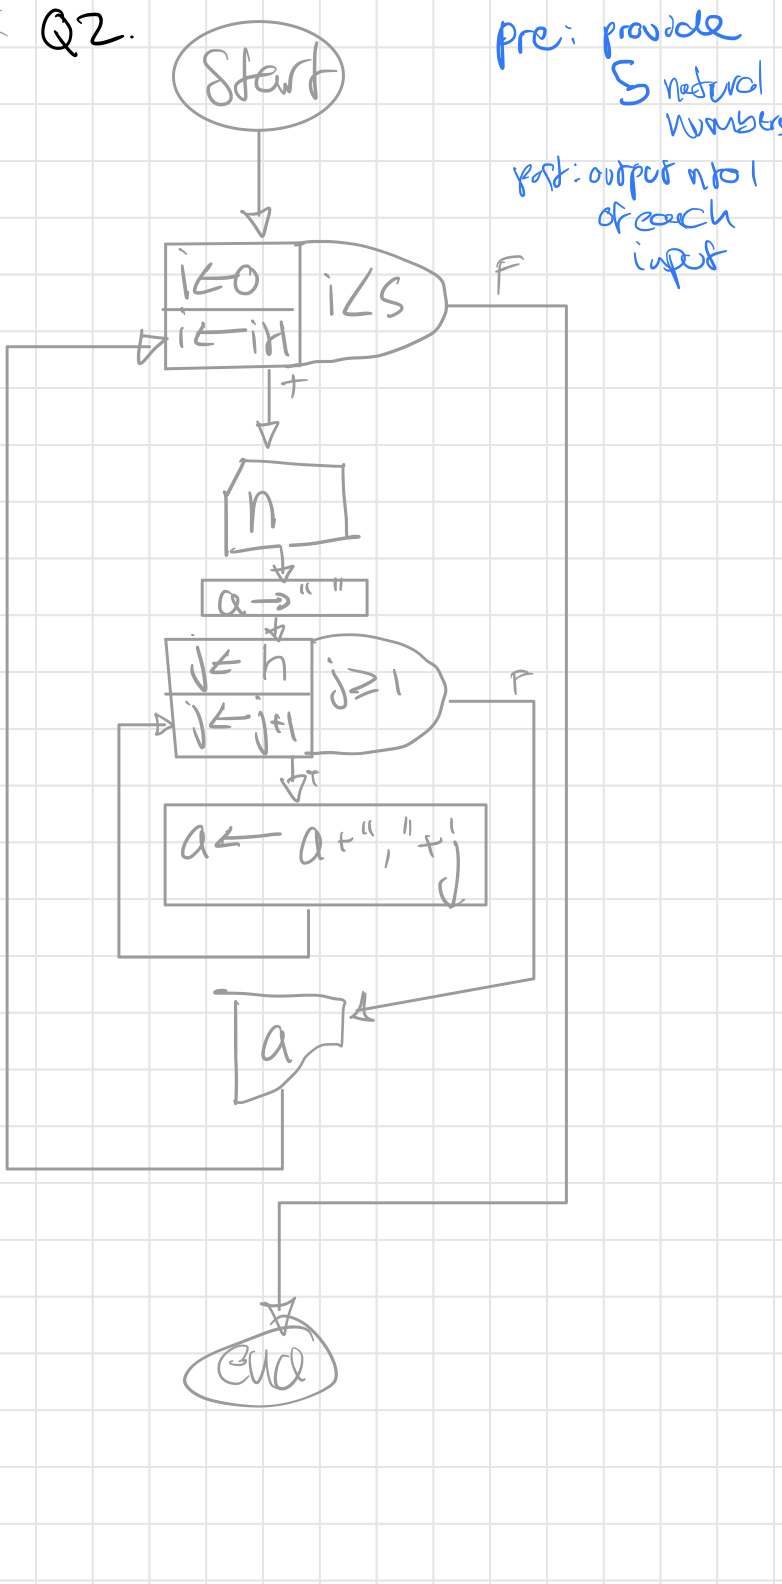 Q2.
pre: provide
5 natural
numbers
post: output n to 1
of each
input
Start
i←0
i←i+1
i<5
F
T
n
a→" "
j← n
j←j+1
j≥1
F
T
a← a+","+j
a
end